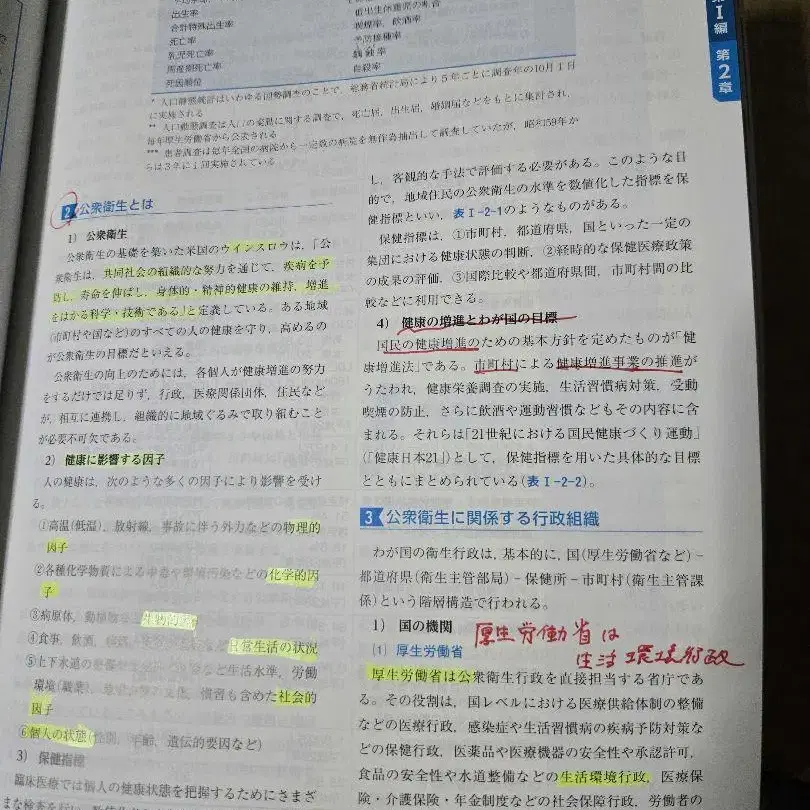 第Ⅰ編 第2章
出生率
合計特殊出生率
死亡率
乳児死亡率
周産期死亡率
死因順位
低出生体重児の割合
喫煙率，飲酒率
予防接種率
自殺率
* 人口静態統計はいわゆる国勢調査のことで，総務省統計局により5年ごとに調査年の10月1日
に実施される
** 人口動態調査は人口の変動に関する調査で，死亡届，出生届，婚姻届などをもとに集計され，
毎年厚生労働省から公表される
*** 患者調査は毎年全国の病院から一定数の病院を無作為抽出して調査していたが，昭和59年か
らは3年に1回実施されている
2 公衆衛生とは
1) 公衆衛生
公衆衛生の基礎を築いた米国のウインスロウは，「公
衆衛生は，共同社会の組織的な努力を通じて，疾病を予
防し，寿命を伸ばし，身体的・精神的健康の維持，増進
をはかる科学・技術である」と定義している。ある地域
(市町村や国など)のすべての人の健康を守り，高めるの
が公衆衛生の目標だといえる。
公衆衛生の向上のためには，各個人が健康増進の努力
をするだけでは足りず，行政，医療関係団体，住民など
が，相互に連携し，組織的に地域ぐるみで取り組むこと
が必要不可欠である。
2) 健康に影響する因子
人の健康は，次のような多くの因子により影響を受け
る。
①高温(低温)，放射線，事故に伴う外力などの物理的
因子
②各種化学物質による中毒や環境汚染などの化学的因
子
③病原体，動植物
④食事，飲酒，日常生活の状況
⑤上下水道の など生活水準，労働
環境(職業)， 慣習も含めた社会的
因子
⑥個人の状態(性別，年齢，遺伝的要因など)
3) 保健指標
臨床医療では個人の健康状態を把握するためにさまざ
まな検査を行い，
し，客観的な手法で評価する必要がある。このような目
的で，地域住民の公衆衛生の水準を数値化した指標を保
健指標といい，表Ⅰ-2-1のようなものがある。
保健指標は，①市町村，都道府県，国といった一定の
集団における健康状態の判断，②経時的な保健医療政策
の成果の評価，③国際比較や都道府県間，市町村間の比
較などに利用できる。
4) 健康の増進とわが国の目標
国民の健康増進のための基本方針を定めたものが「健
康増進法」である。市町村による健康増進事業の推進が
うたわれ，健康栄養調査の実施，生活習慣病対策，受動
喫煙の防止，さらに飲酒や運動習慣などもその内容に含
まれる。それらは「21世紀における国民健康づくり運動」
(「健康日本21」)として，保健指標を用いた具体的な目標
とともにまとめられている(表Ⅰ-2-2)。
3 公衆衛生に関係する行政組織
わが国の衛生行政は，基本的に，国(厚生労働省など)－
都道府県(衛生主管部局)－保健所－市町村(衛生主管課
係)という階層構造で行われる。
1) 国の機関
厚生労働省は
生活環境行政
(1) 厚生労働省
厚生労働省は公衆衛生行政を直接担当する省庁であ
る。その役割は，国レベルにおける医療供給体制の整備
などの医療行政，感染症や生活習慣病の疾病予防対策な
どの保健行政，医薬品や医療機器の安全性や承認許可，
食品の安全性や水道整備などの生活環境行政，医療保
険・介護保険・年金制度などの社会保障行政，労働者の